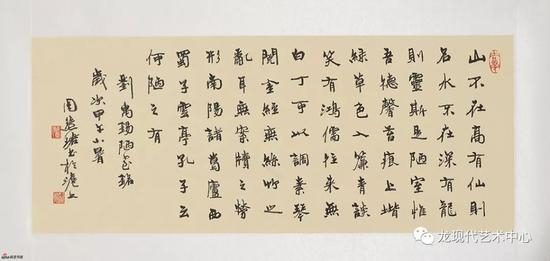 山不在高有仙則
名水不在深有龍
則靈斯是陋室惟
吾德馨苔痕上堦
綠草色入簾青談
笑有鴻儒往來無
白丁可以調素琴
閱金經無絲竹之
亂耳無案牘之勞
形南陽諸葛廬西
蜀子雲亭孔子云
何陋之有
劉禹錫陋室銘
歲次甲午小暑
周慧珺書於滬上
龙现代艺术中心